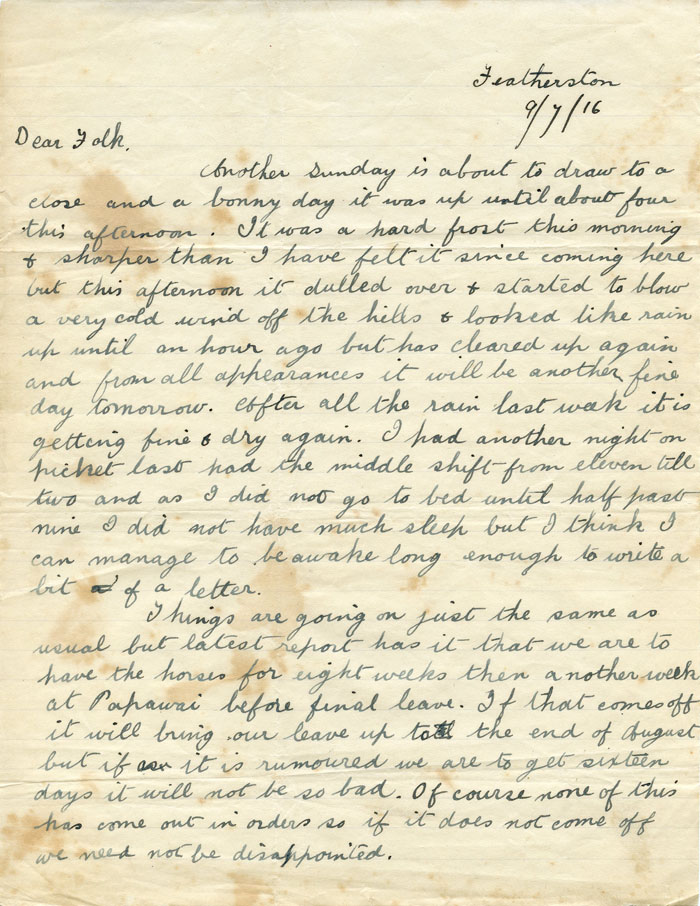 Featherston
9/7/16
Dear Folk.
Another Sunday is about to draw to a
close and a bonny day it was up until about four
this afternoon. It was a hard frost this morning
& sharper than I have felt it since coming here
but this afternoon it dulled over & started to blow
a very cold wind off the hills & looked like rain
up until an hour ago but has cleared up again
and from all appearances it will be another fine
day tomorrow. After all the rain last week it is
getting fine & dry again. I had another night on
picket last had the middle shift from eleven till
two and as I did not go to bed until half past
nine I did not have much sleep but I think I
can manage to be awake long enough to write a
bit of a letter.
Things are going on just the same as
usual but latest report has it that we are to
have the horses for eight weeks then another week
at Papawai before final leave. If that comes off
it will bring our leave up to the end of August
but if it is rumoured we are to get sixteen
days it will not be so bad. Of course none of this
has come out in orders so if it does not come off
we need not be disappointed.